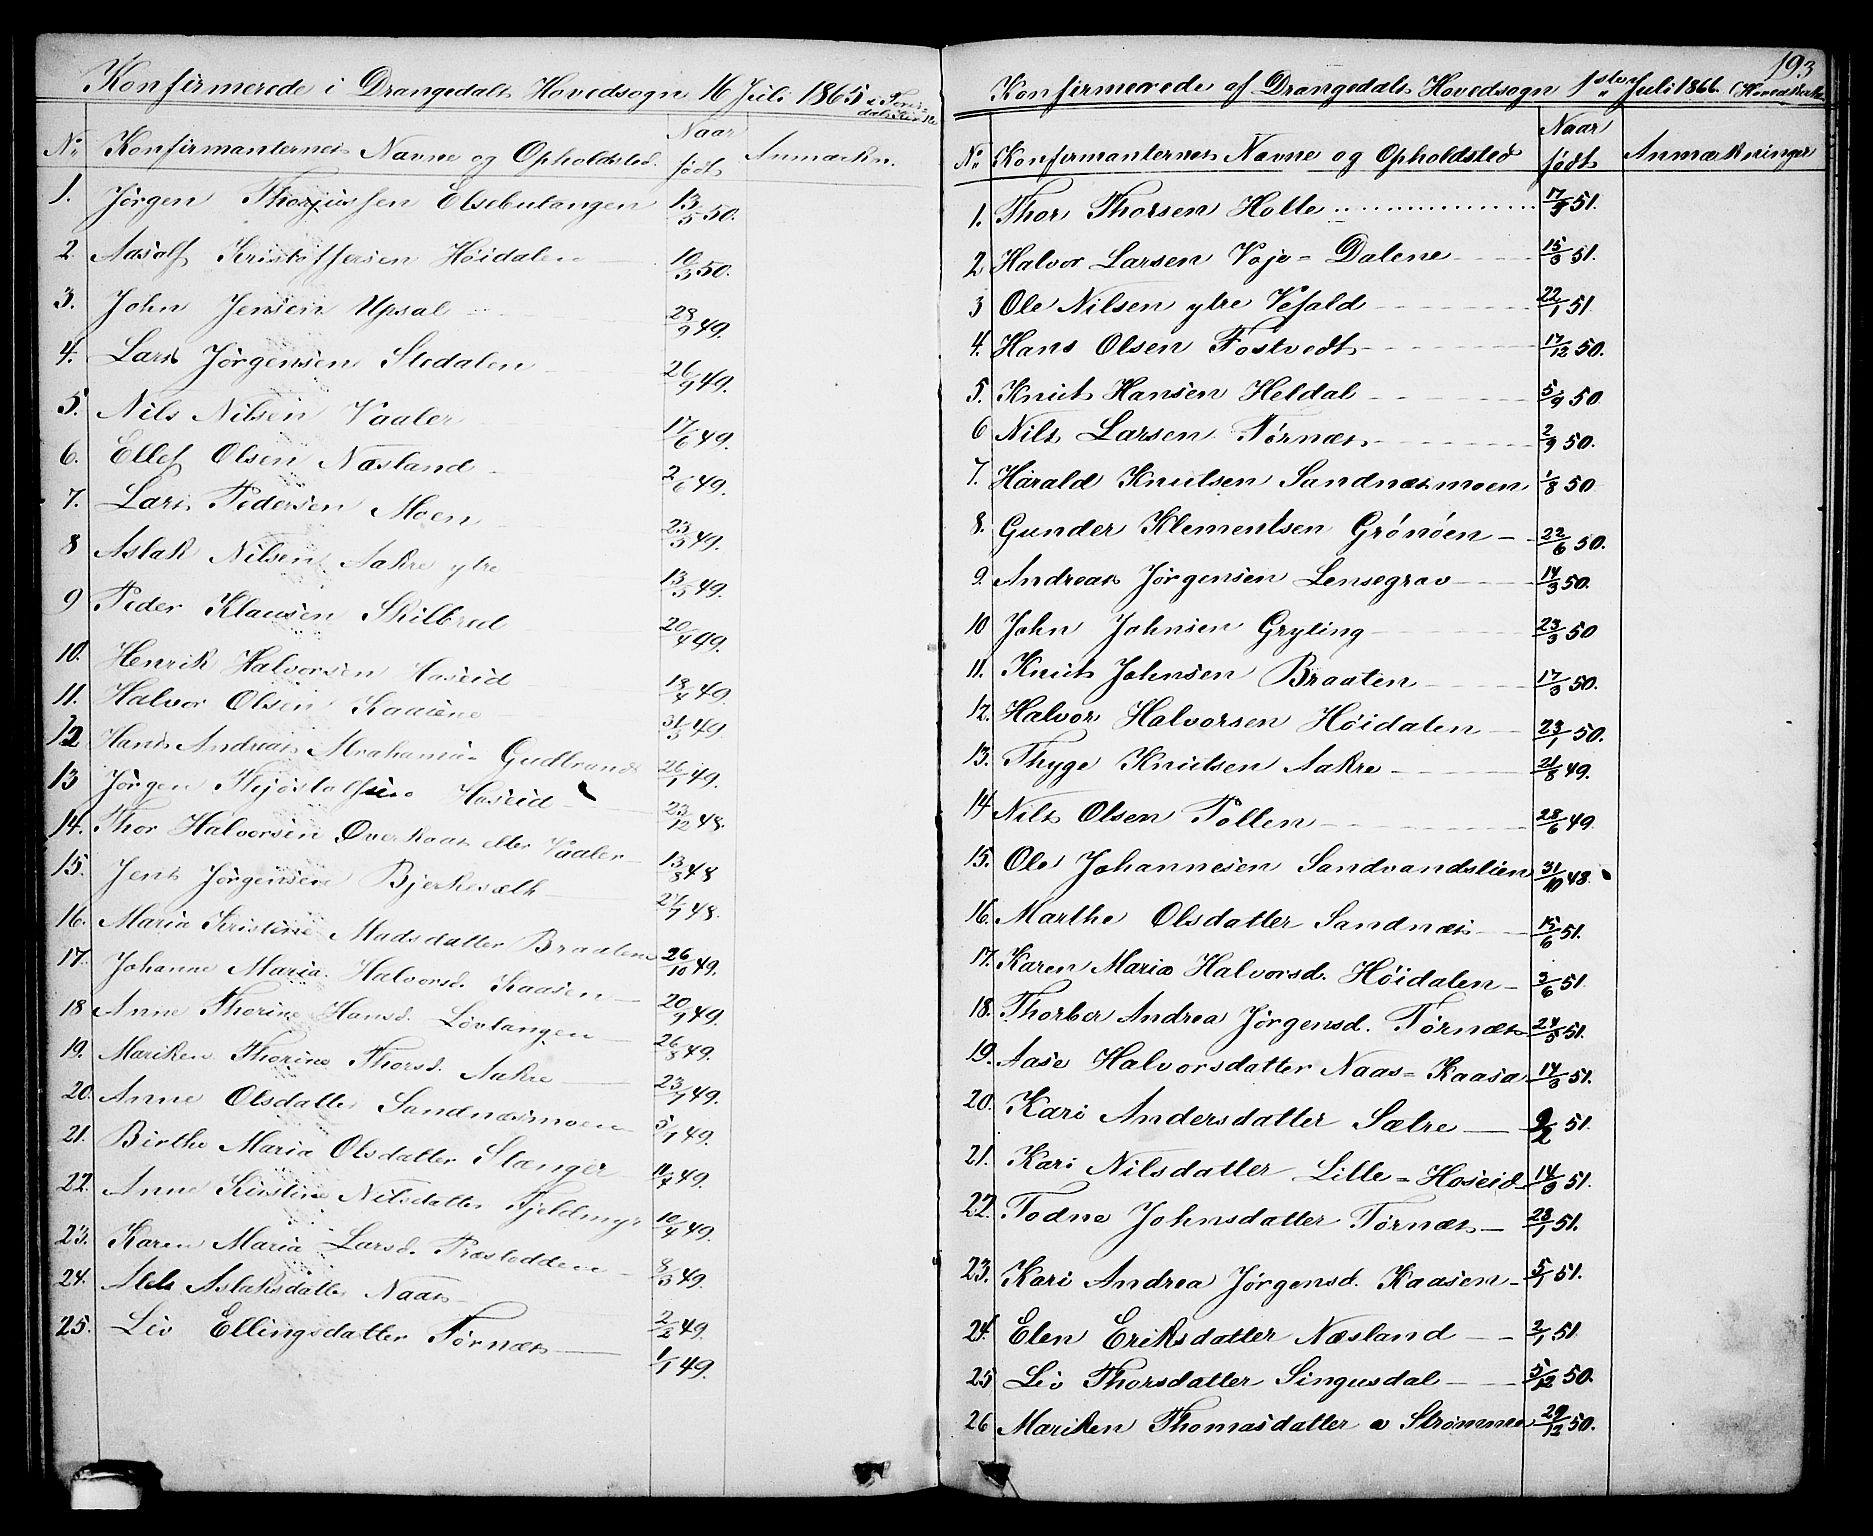 Konfirmerede i Drangedals Hovedsogn 16 Juli 1865 i Tørdals Kirke
No Konfirmanternes Navne og Opholdsted. Naar født Anmærkn.
1. Jörgen Thorjussen Elsebutangen 13/5 50.
2 Aasolf Kristoffersen Höidalen 10/3 50.
3. John Jensen Upsal 28/9 49.
4. Lars Jörgensen Stedalen 26/9 49.
5. Nils Nilsen Vaaler 17/6 49.
6. Ellef Olsen Næsland 2/6 49.
7. Lars Pedersen Moen 23/5 49.
8 Aslak Nilsen Aakre ytre 13/5 49.
9 Peder Klausen Skilbred 20/4 49.
10. Henrik Halvorsen Hoseid 18/4 49.
11. Halvor Olsen Kaasene 31/3 49
12 Hans Andreas Abrahams. Gudbrands 26/1 49.
13 Jörgen Kjöstolfsen Hoseid 23/12 48.
14. Thor Halvorsen Överkaas eller Vaaler 13/8 48
15. Jens Jörgensen Bjerkesælt 27/7 48.
16. Maria Kristine Madsdatter Braatene 26/10 49.
17. Johanne Maria Halvorsd. Kaasen 20/9 49.
18 Anne Thorine Hansd. Lövtangen 26/8 49.
19. Mariken Thorine Thorsd. Aakre 23/7 49.
20. Anne Olsdatter Sandnæsmoen 5/7 49.
21. Birthe Maria Olsdatter Stænger 11/7 49.
22. Anne Kirstine Nilsdatter Fjeldmyr 10/4 49.
23. Karen Maria Larsd. Præstodden 8/3 49.
24. Aslaksdatter Naas 2/2 49.
25. Liv Ellingsdatter Törnæs 1/1 49.
193
Konfirmerede af Drangedals Hovedsogn 1ste Juli 1866. (Hovedkirken
No Konfirmanternes Navne og Opholdsted Naar født Anmærkninger
1. Thor Thorsen Holte 17/5 51.
2 Halvor Larsen Voje = Dalene 15/3 51.
3 Ole Nilsen ytre Vefald 22/1 51
4. Hans Olsen Fostvedt 17/12 50.
5. Knut Hansen Heldal 5/9 50
6 Nils Larsen Törnæs 2/9 50.
7. Harald Knutsen Sandnæsmoen 1/8 50
8. Gunder Klementsen Grönöen 22/6 50.
9. Andreas Jörgensen Lensegrav 14/3 50.
10 John Johnsen Gryting 23/3 50
11. Knut Johnsen Braaten 17/3 50.
12. Halvor Halvorsen Höidalen 23/1 50.
13. Thyge Knutsen Aakre 21/8 49.
14 Nils Olsen Tollen 28/6 49
15. Ole Johannesen Sandvandslien 31/10 48.
16. Marthe Olsdatter Sandnæs 15/6 51.
17. Karen Maria Halvorsd. Höidalen 3/6 51
18. Thorber Andrea Jörgensd. Törnæs 24/5 51.
19. Aase Halvorsdatter Naas = Kaasa 14/3 51.
20. Kari Andersdatter Sætre 9/2 51.
21. Kari Nilsdatter Lille = Hoseid 14/3 51.
22. Todne Johnsdatter Törnæs 28/1 51.
23. Kari Andrea Jörgensd. Kaasen 5/1 51.
24. Elen Eriksdatter Næsland 2/1 51
25 Liv Thorsdatter Singusdal 5/12 50.
26 Mariken Thomasdatter Strömmen 29/12 50.